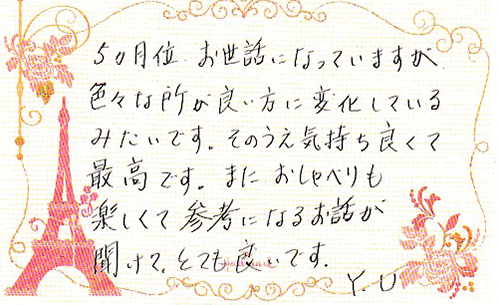 5ヵ月位 お世話になっていますが、
色々な所が良い方に変化している
みたいです。そのうえ気持ち良くて
最高です。またおしゃべりも
楽しくて参考になるお話が
聞けて、とても良いです。
Y.U